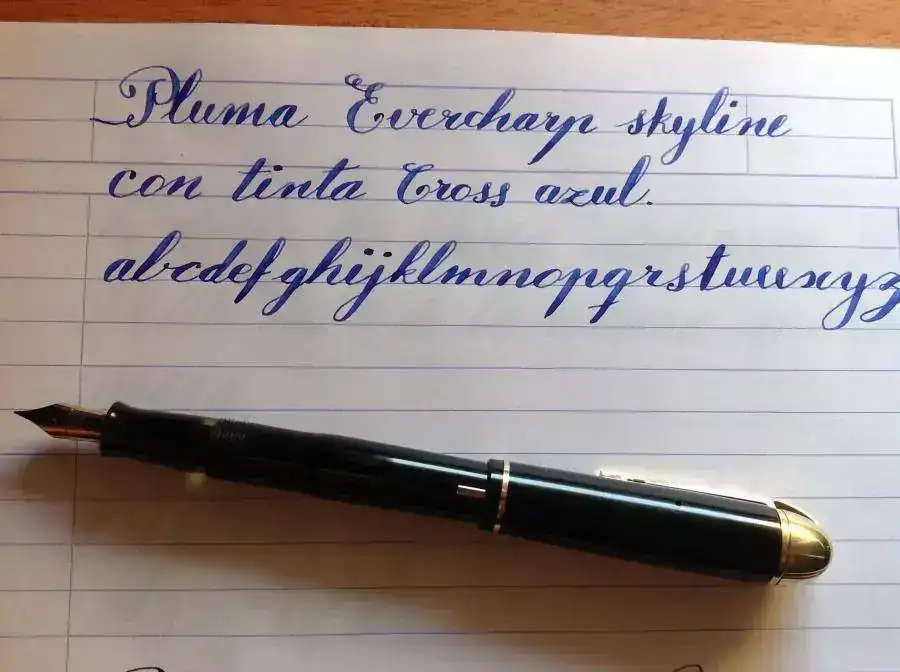 Pluma Evercharp skyline
con tinta Cross azul.
abcdefghijklmnopqrstuvxyz